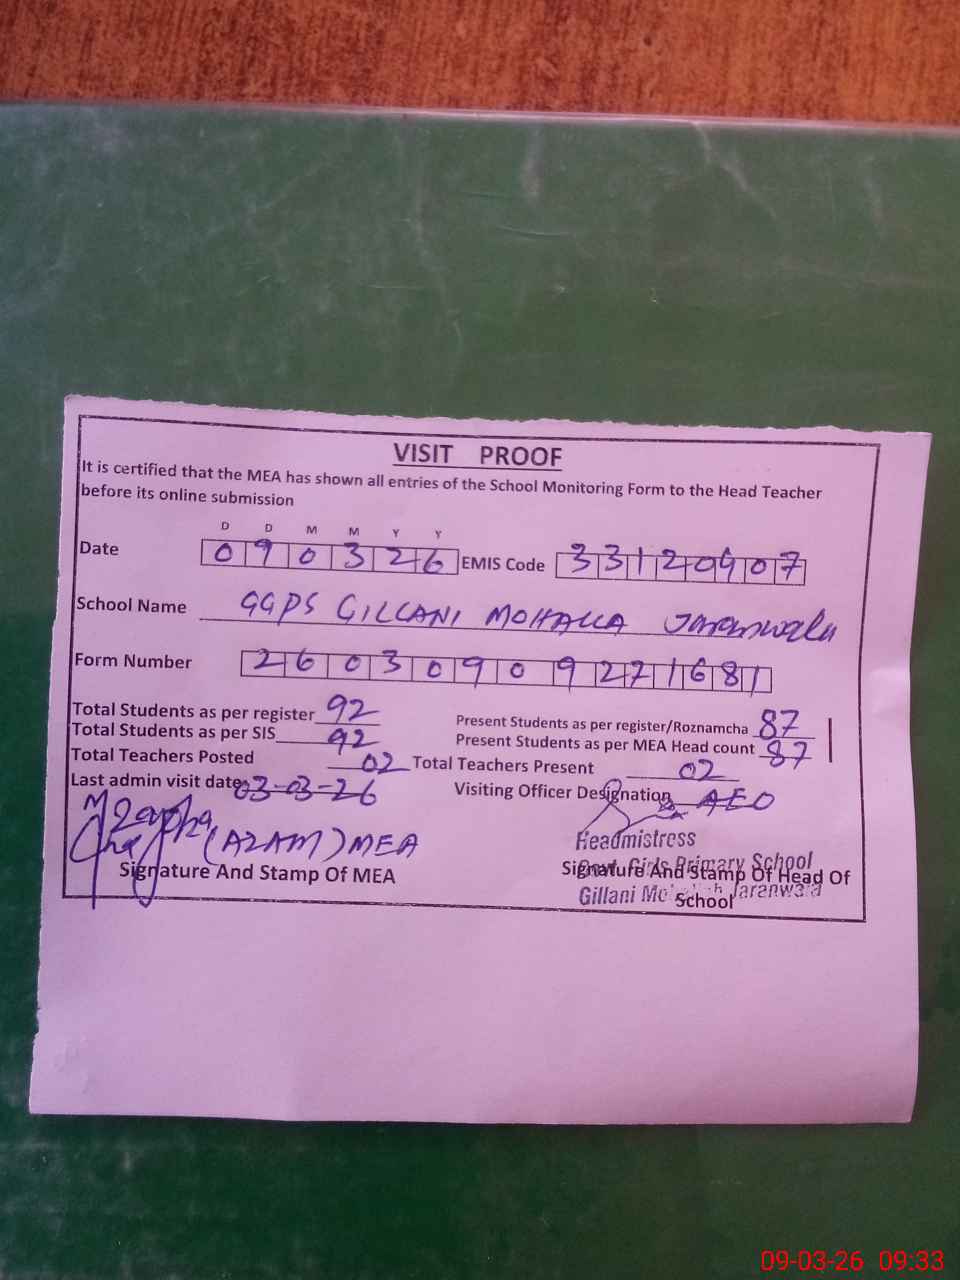 VISIT PROOF
It is certified that the MEA has shown all entries of the School Monitoring Form to the Head Teacher
before its online submission
D D M M Y Y
Date 090326 EMIS Code 33120907
School Name GGPS GILLANI MOHALLA Jaranwala
Form Number 26030909271681
Total Students as per register 92 Present Students as per register/Roznamcha 87
Total Students as per SIS 92 Present Students as per MEA Head count 87
Total Teachers Posted 02 Total Teachers Present 02
Last admin visit date 03-03-26 Visiting Officer Designation AEO
(AZAM) MEA
Headmistress
Govt. Girls Primary School
Signature And Stamp Of MEA Signature And Stamp Of Head Of
Gillani Jaranwala
School
09-03-26 09:33